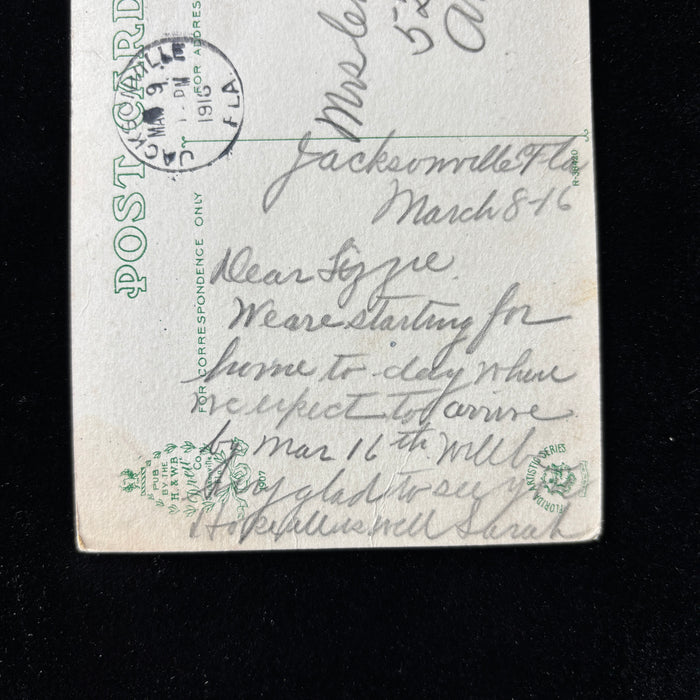 POST CARD
JACKSONVILLE
MAR 9
PM
1916
FLA.
FOR ADDRESS
Mrs
52
FOR CORRESPONDENCE ONLY
Jacksonville Fla
March 8-16
Dear Lizzie.
We are starting for
home to day where
we expect to arrive
by Mar 16th. Will be
very glad to see you
Hope all is well Sarah
PUB.
BY THE
H. & W.B.
Drew
Co.
1907
FLORIDA ARTISTIC SERIES
R-38420